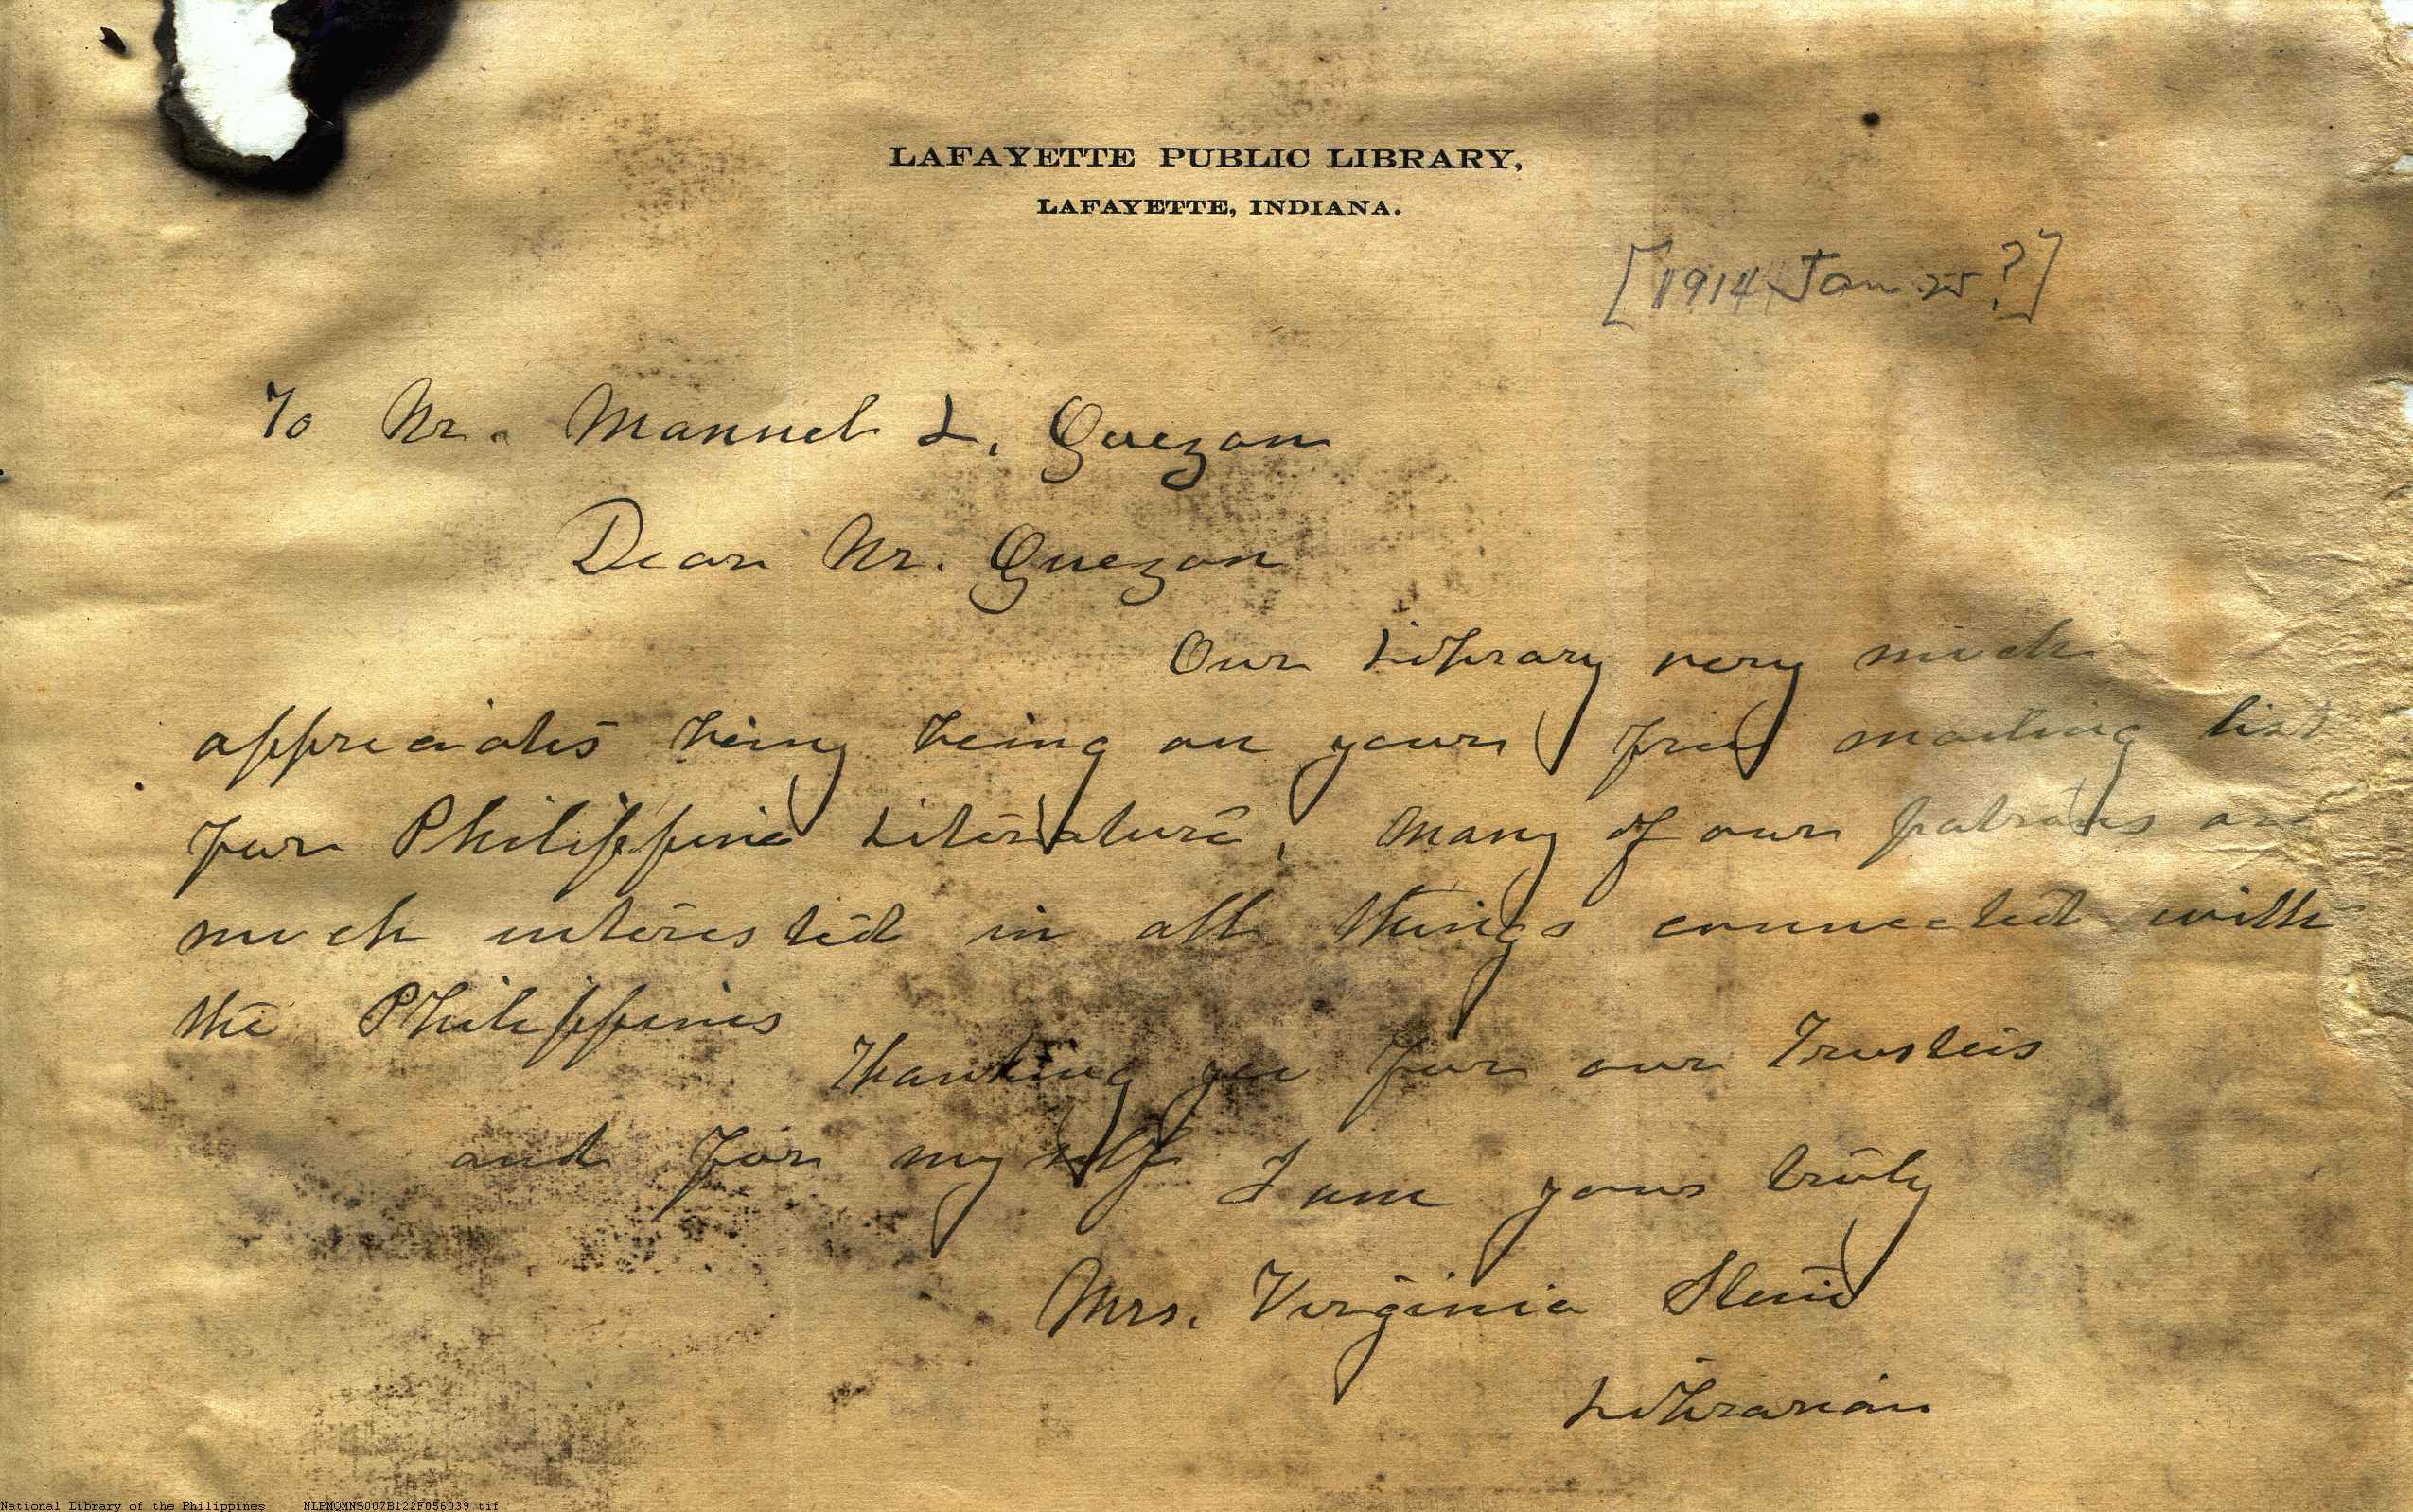 LAFAYETTE PUBLIC LIBRARY,
LAFAYETTE, INDIANA.
[1914 Jan 25?]
To Mr. Manuel L. Quezon
Dear Mr. Quezon
Our Library very much
appreciates being being on your free mailing list
for Philippine Literature, Many of our patrons are
much interested in all things connected with
the Philippines
Thanking you for our Trustees
and for myself I am yours truly
Mrs. Virginia Stein
Librarian
National Library of the Philippines NLPMQMNS007B122F056039.tif